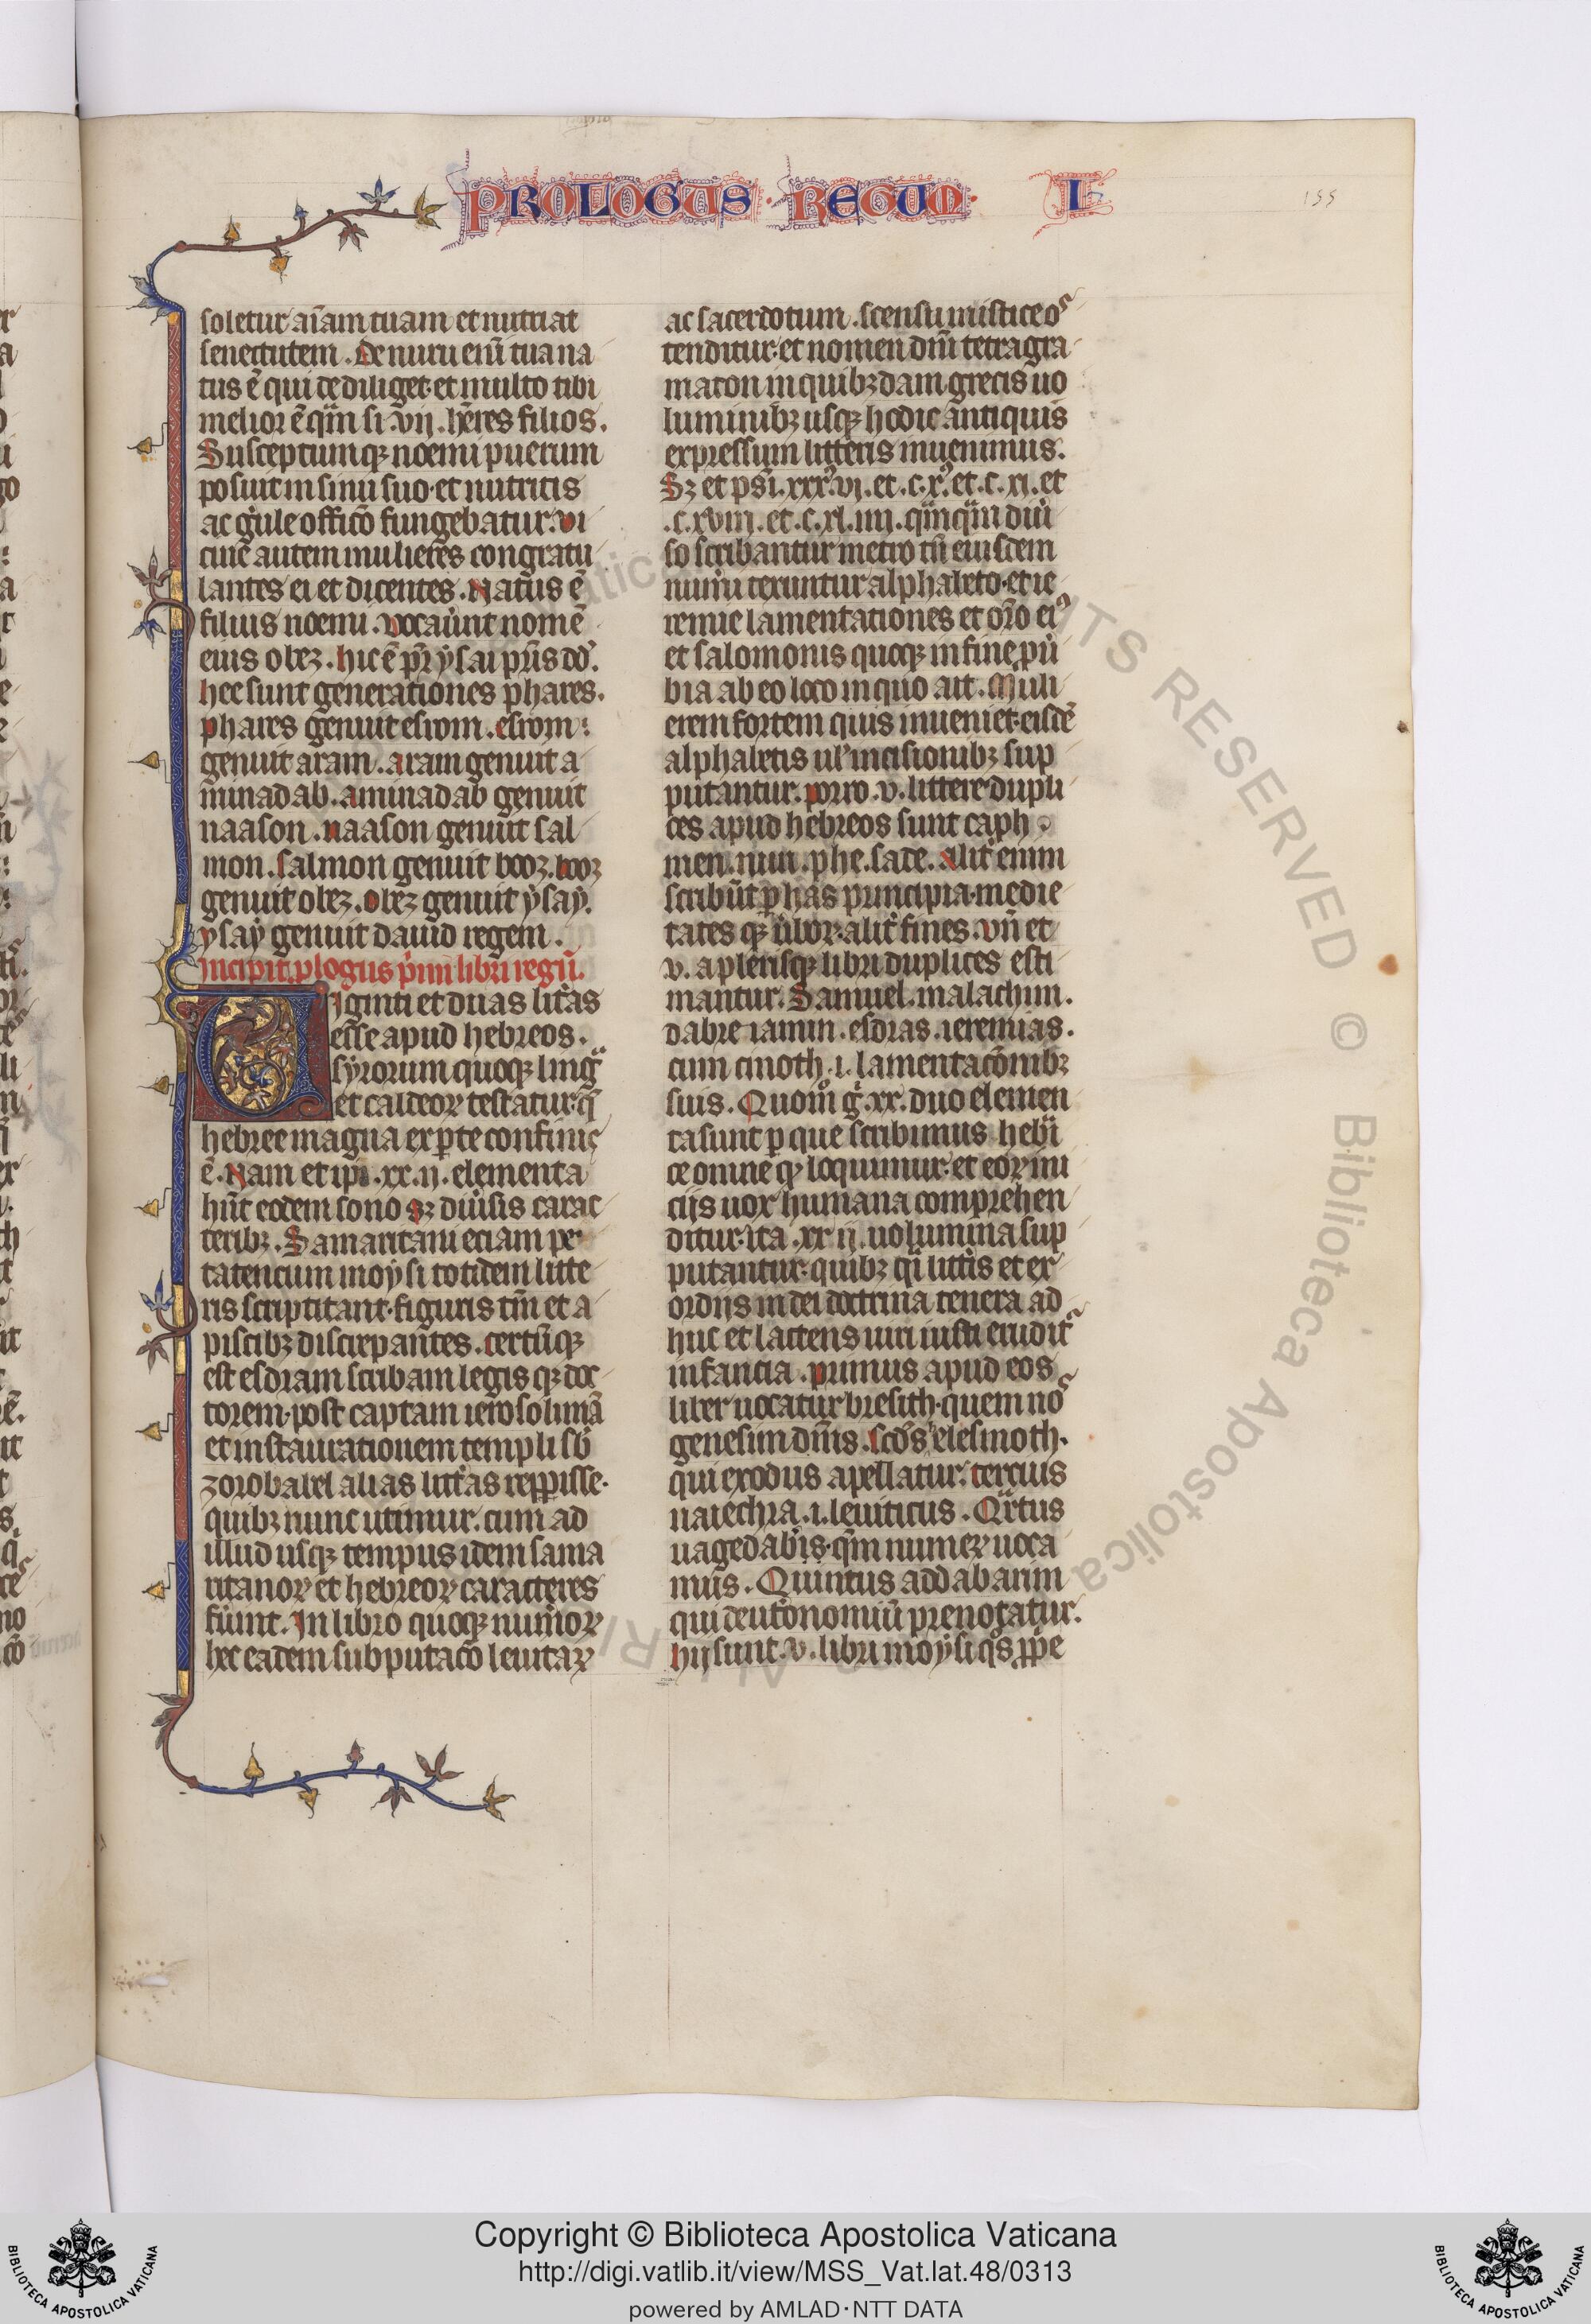 PROLOGUS · REGUM · I
155
soletur aīam tuam et nutriat
senectutem. De nuru enī tua na
tus ē qui te diliget· et multo tibi
melior ē qͣm si .vij. hēres filios.
Susceptumqꝫ noemi puerum
posuit in sinu suo· et nutricis
ac g̾ule officō fungebatur. vi
cine autem mulieres congratu
lantes ei et dicentes. Natus ē
filius noemi. vocau̾nt nomē
eius obeꝫ. hic ē pr̄ ysai pr̄is dd̾.
hec sunt generationes phares.
phares genuit esrom. esrom
genuit aram. aram genuit a
minadab. aminadab genuit
naason. naason genuit sal
mon. salmon genuit booꝫ. booꝫ
genuit obeꝫ. obeꝫ genuit ysaẏ.
ysaẏ genuit dauid regem.
Incipit ꝓlogus p̾mi libri regū.
Viginti et duas litt̾as
esse apud hebreos.
syrorum quoqꝫ lingᷓ
et caldeoꝝ testatur· q̄
hebree magna ex ꝑte confinis
ē. Nam et ipi .xx.ij. elementa
hn̄t eodem sono sꝫ diu̾sis carac
teribꝫ. Samaritani etiam pe
tateucum moẏsi totidem litte
ris scriptitant· figuris tm̄ et a
piscibꝫ discrepantes. certūqꝫ
est esdram scribam legis qꝫ doc
torem· post captam ierosolimā
et instaurationem templi sb̄
zorobabel alias litt̾as repꝑisse·
quibꝫ nunc utimur. cum ad
illud usqꝫ tempus idem sama
ritanoꝝ et hebreoꝝ caracteres
fu̾int. In libro quoqꝫ num̾oꝝ
hec eadem subputacō leuitaꝝ
ac sacerdotum. s censu mistice oˢ
tenditur· et nomen dnī tetragra
maton in quibꝫdam grecis uo
luminibꝫ usqꝫ hodie antiquis
expressum litteris inuenimus.
Sꝫ et psī .xxx.vj. et .c.x. et .c.xj. et
.c.xviij. et .c.xl.iiij. qͣmqͣm diu̾
so scribantur metro tn̄ eiusdem
num̾i texuntur alphabeto· et ie
remie lamentationes et or̄o eiꝰ
et salomonis quoqꝫ in fine ꝓu̾
bia ab eo loco in quo ait. Muli
erem fortem quis inueniet· eisdē
alphabetis ul̾ incisionibꝫ sup
putantur. porro .v. littere dupli
ces apud hebreos sunt caph
men. nun. phe. sade. Alit̾ enim
scribūt ꝑ has principia· medie
tates qꝫ u̾boꝝ· alit̾ fines. vn̄ et
v. a pleriſqꝫ libri duplices esti
mantur. Samuel. malachim.
dabre iamin. esdras. ieremias.
cum cinoth .i. lamentacōnibꝫ
suis. Quomͦ gͥ .xx. duo elemen
ta sunt ꝑ que scribimus hebi
ce omne qͩ loquimur· et eoꝝ ini
cijs uox humana comprehen
ditur· ita .xx ij. uolumina sup
putantur· quibꝫ qͣi litt̾is et ex
ordijs in dei doctrina tenera ad
huc et lactens uiri iusti eruditͬ
infancia. primus apud eos
liber uocatur bresith· quem noˢ
genesim dnīs. scd̾s elesmoth·
qui exodus apellatur. tercius
uaiechra .i. leuiticus. Qͬrtus
uagedab̾is· qͣm numeꝝ uoca
mus. Quintus addabarim
qui deut̾onomiū prenotatur.
hij sunt .v. libri moẏsi qͦs ꝓpͥe
Copyright © Biblioteca Apostolica Vaticana
http://digi.vatlib.it/view/MSS_Vat.lat.48/0313
powered by AMLAD·NTT DATA
BIBLIOTECA APOSTOLICA VATICANA
BIBLIOTECA APOSTOLICA VATICANA